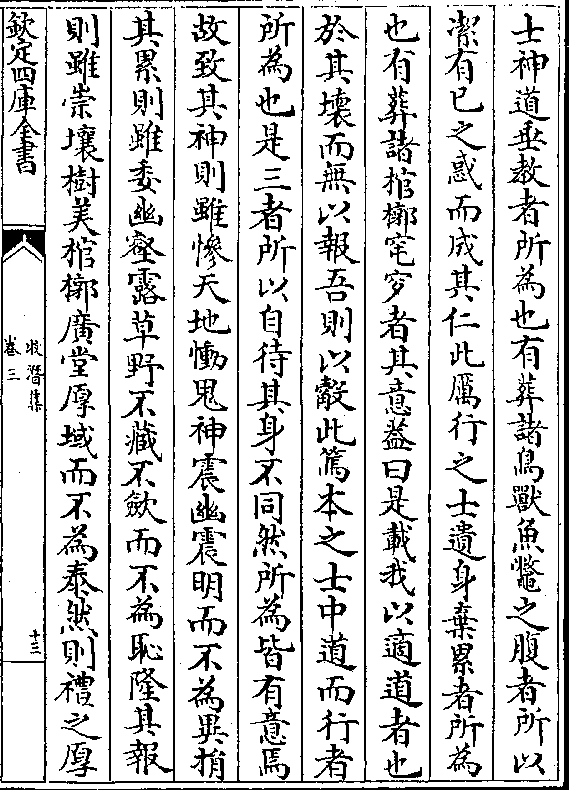 士神道垂教者所為也有葬諸鳥獸魚鼈之腹者所以
潔有已之惑而成其仁此厲行之士遺身棄累者所為
也有葬諸棺槨窀穸者其意葢曰是載我以適道者也
於其壊而無以報吾則以觳此篤本之士中道而行者
所為也是三者所以自待其身不同然所為皆有意焉
故致其神則雖慘天地慟鬼神震幽震明而不為異捐
其累則雖委幽壑露草野不藏不歛而不為恥隆其報
則雖崇壤樹美棺槨廣堂厚域而不為泰然則禮之厚
欽定四庫全書
牧潛集
卷三
十三